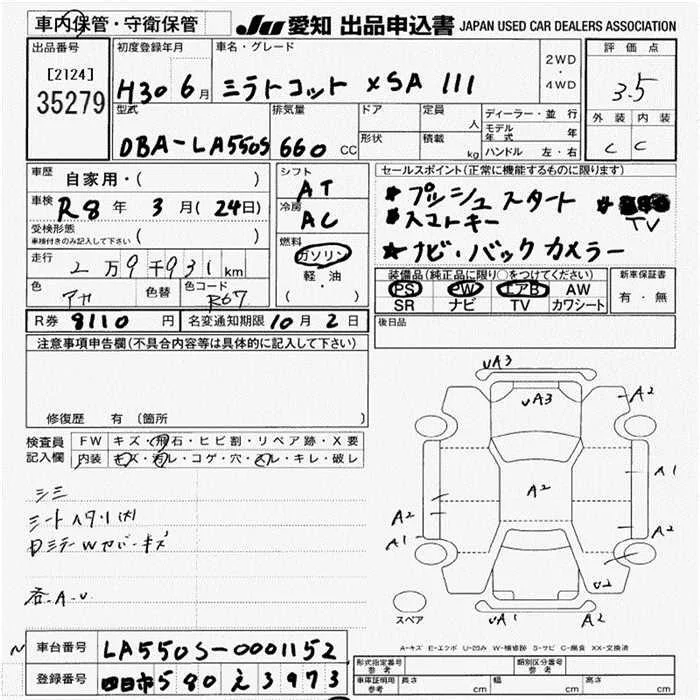 車内保管・守衛保管
JU 愛知 出品申込書 JAPAN USED CAR DEALERS ASSOCIATION
出品番号
[2124]
35279
初度登録年月
H30 6月
車名・グレード
ミラトコット XSA III
2WD
・
4WD
評価点
3.5
外装 内装
C C
型式
DBA-LA550S
排気量
660 CC
ドア
形状
定員
人
積載
kg
ディーラー・並行
モデル年式 年
ハンドル 左・右
車歴
自家用・( )
車検 R8年 3月(24日)
受検形態
車検付きのみ記入して下さい ( )
走行 2万9千931km
色 アカ 色替 色コード R67
シフト
AT
冷房
AC
燃料
ガソリン
・
軽・油
( ・ )
セールスポイント(正常に機能するものに限ります)
*プッシュスタート
*スマートキー
TV
*ナビ・バックカメラー
装備品(純正品に限り○をつけてください)
PS PW エアB AW
SR ナビ TV カワシート
新車保証書
有・無
R券 8110円 名変通知期限 10月2日
後日品
注意事項申告欄(不具合内容等は具体的に記入して下さい)
修復歴 有(箇所 )
検査員記入欄
FW キズ・飛石・ヒビ割・リペア跡・X要
内装 キズ・汚レ・コゲ・穴・スレ・キレ・破レ
シミ
シートヘタリ(大)
日ミラーWカバーキズ
各A.U
UA3
UA3
A2
A1
A2
A2
A2
A1
U2
UA1
A2
スペア
A-キズ E-エクボ U-凹み W-補修跡 S-サビ C-腐食 XX-交換済
車台番号 LA550S-0001152
登録番号 四日市580え3973
形式指定番号
参考
類別区分番号
参考
車庫証明用
参考
長さ cm 幅 cm 高さ cm